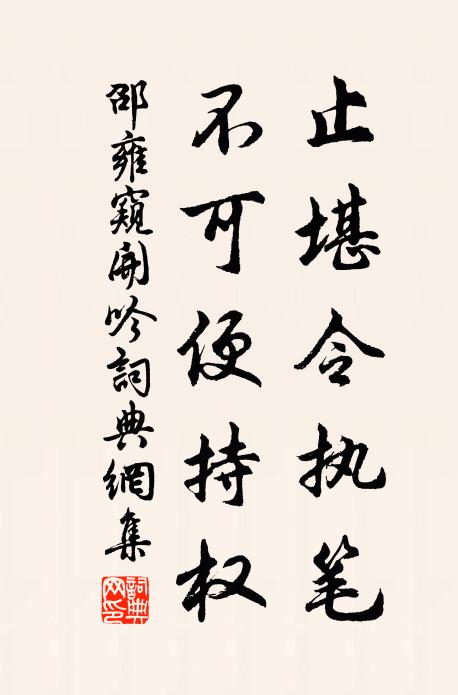 止堪令执笔
不可便持权
邵雍窥开吟詞典網集
詞典网印